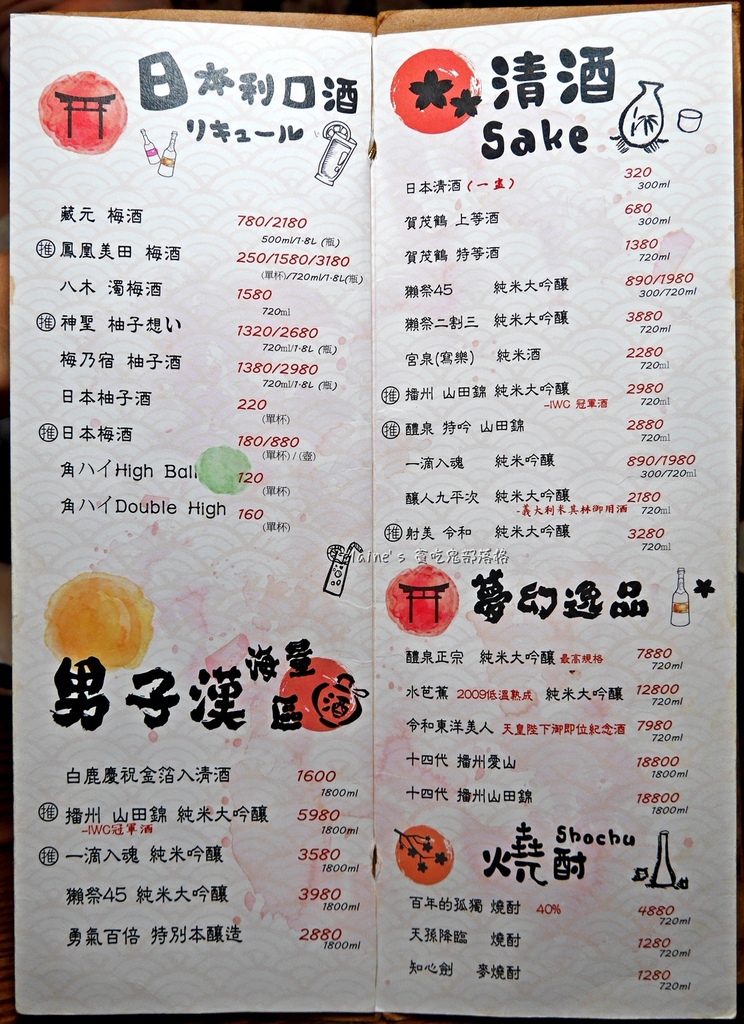 日本利口酒
リキュール
藏元 梅酒 780/2180
500ml/1.8L (瓶)
推 鳳凰美田 梅酒 250/1580/3180
(單杯)/720ml/1.8L(瓶)
八木 濁梅酒 1580
720ml
推 神聖 柚子想い 1320/2680
720ml/1.8L (瓶)
梅乃宿 柚子酒 1380/2980
720ml/1.8L (瓶)
日本柚子酒 220
(單杯)
推 日本梅酒 180/880
(單杯) / (壺)
角ハイHigh Ball 120
(單杯)
角ハイDouble High 160
(單杯)
男子漢 海量區
酒
白鹿慶祝金箔入清酒 1600
1800ml
推 播州 山田錦 純米大吟釀 5980
-IWC冠軍酒 1800ml
推 一滴入魂 純米吟釀 3580
1800ml
獺祭45 純米大吟釀 3980
1800ml
勇氣百倍 特別本釀造 2880
1800ml
清酒
Sake
日本清酒(一盅) 320
300ml
賀茂鶴 上等酒 680
300ml
賀茂鶴 特等酒 1380
720ml
獺祭45 純米大吟釀 890/1980
300/720ml
獺祭二割三 純米大吟釀 3880
720ml
宮泉(寫樂) 純米酒 2280
720ml
推 播州 山田錦 純米大吟釀 2980
-IWC 冠軍酒 720ml
推 醴泉 特吟 山田錦 2880
720ml
一滴入魂 純米吟釀 890/1980
300/720ml
釀人九平次 純米大吟釀 2180
-義大利米其林御用酒 720ml
推 射美 令和 純米大吟釀 3280
720ml
Elaine's 貪吃鬼部落格
夢幻逸品
醴泉正宗 純米大吟釀 最高規格 7880
720ml
水芭蕉 2009低溫熟成 純米大吟釀 12800
720ml
令和東洋美人 天皇陛下御即位紀念酒 7980
720ml
十四代 播州愛山 18800
1800ml
十四代 播州山田錦 18800
1800ml
燒酎 Shochu
百年的孤獨 燒酎 40% 4880
720ml
天孫降臨 燒酎 1280
720ml
知心劍 麥燒酎 1280
720ml